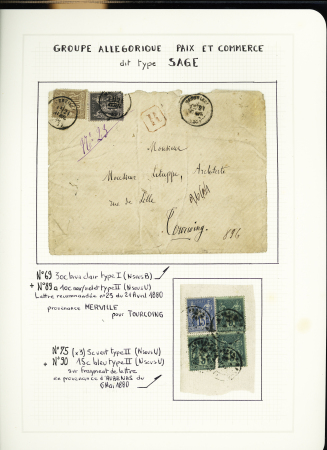 GROUPE ALLEGORIQUE PAIX ET COMMERCE
dit type SAGE
R
N° 25
Monsieur
Monsieur Architecte
rue de Lille
Tourcoing
N°69 30c brun clair type I (N sous B)
+ N°89 a 10c type II (N sous U)
Lettre recommandée n° 25 du 21 Avril 1880
provenance MERVILLE
pour TOURCOING
N°75 (x3) 5c vert type II (N sous U)
+ N°90 15c bleu type II (N sous U)
sur fragment de lettre
en provenance d'AUBENAS du
6 Mai 1880